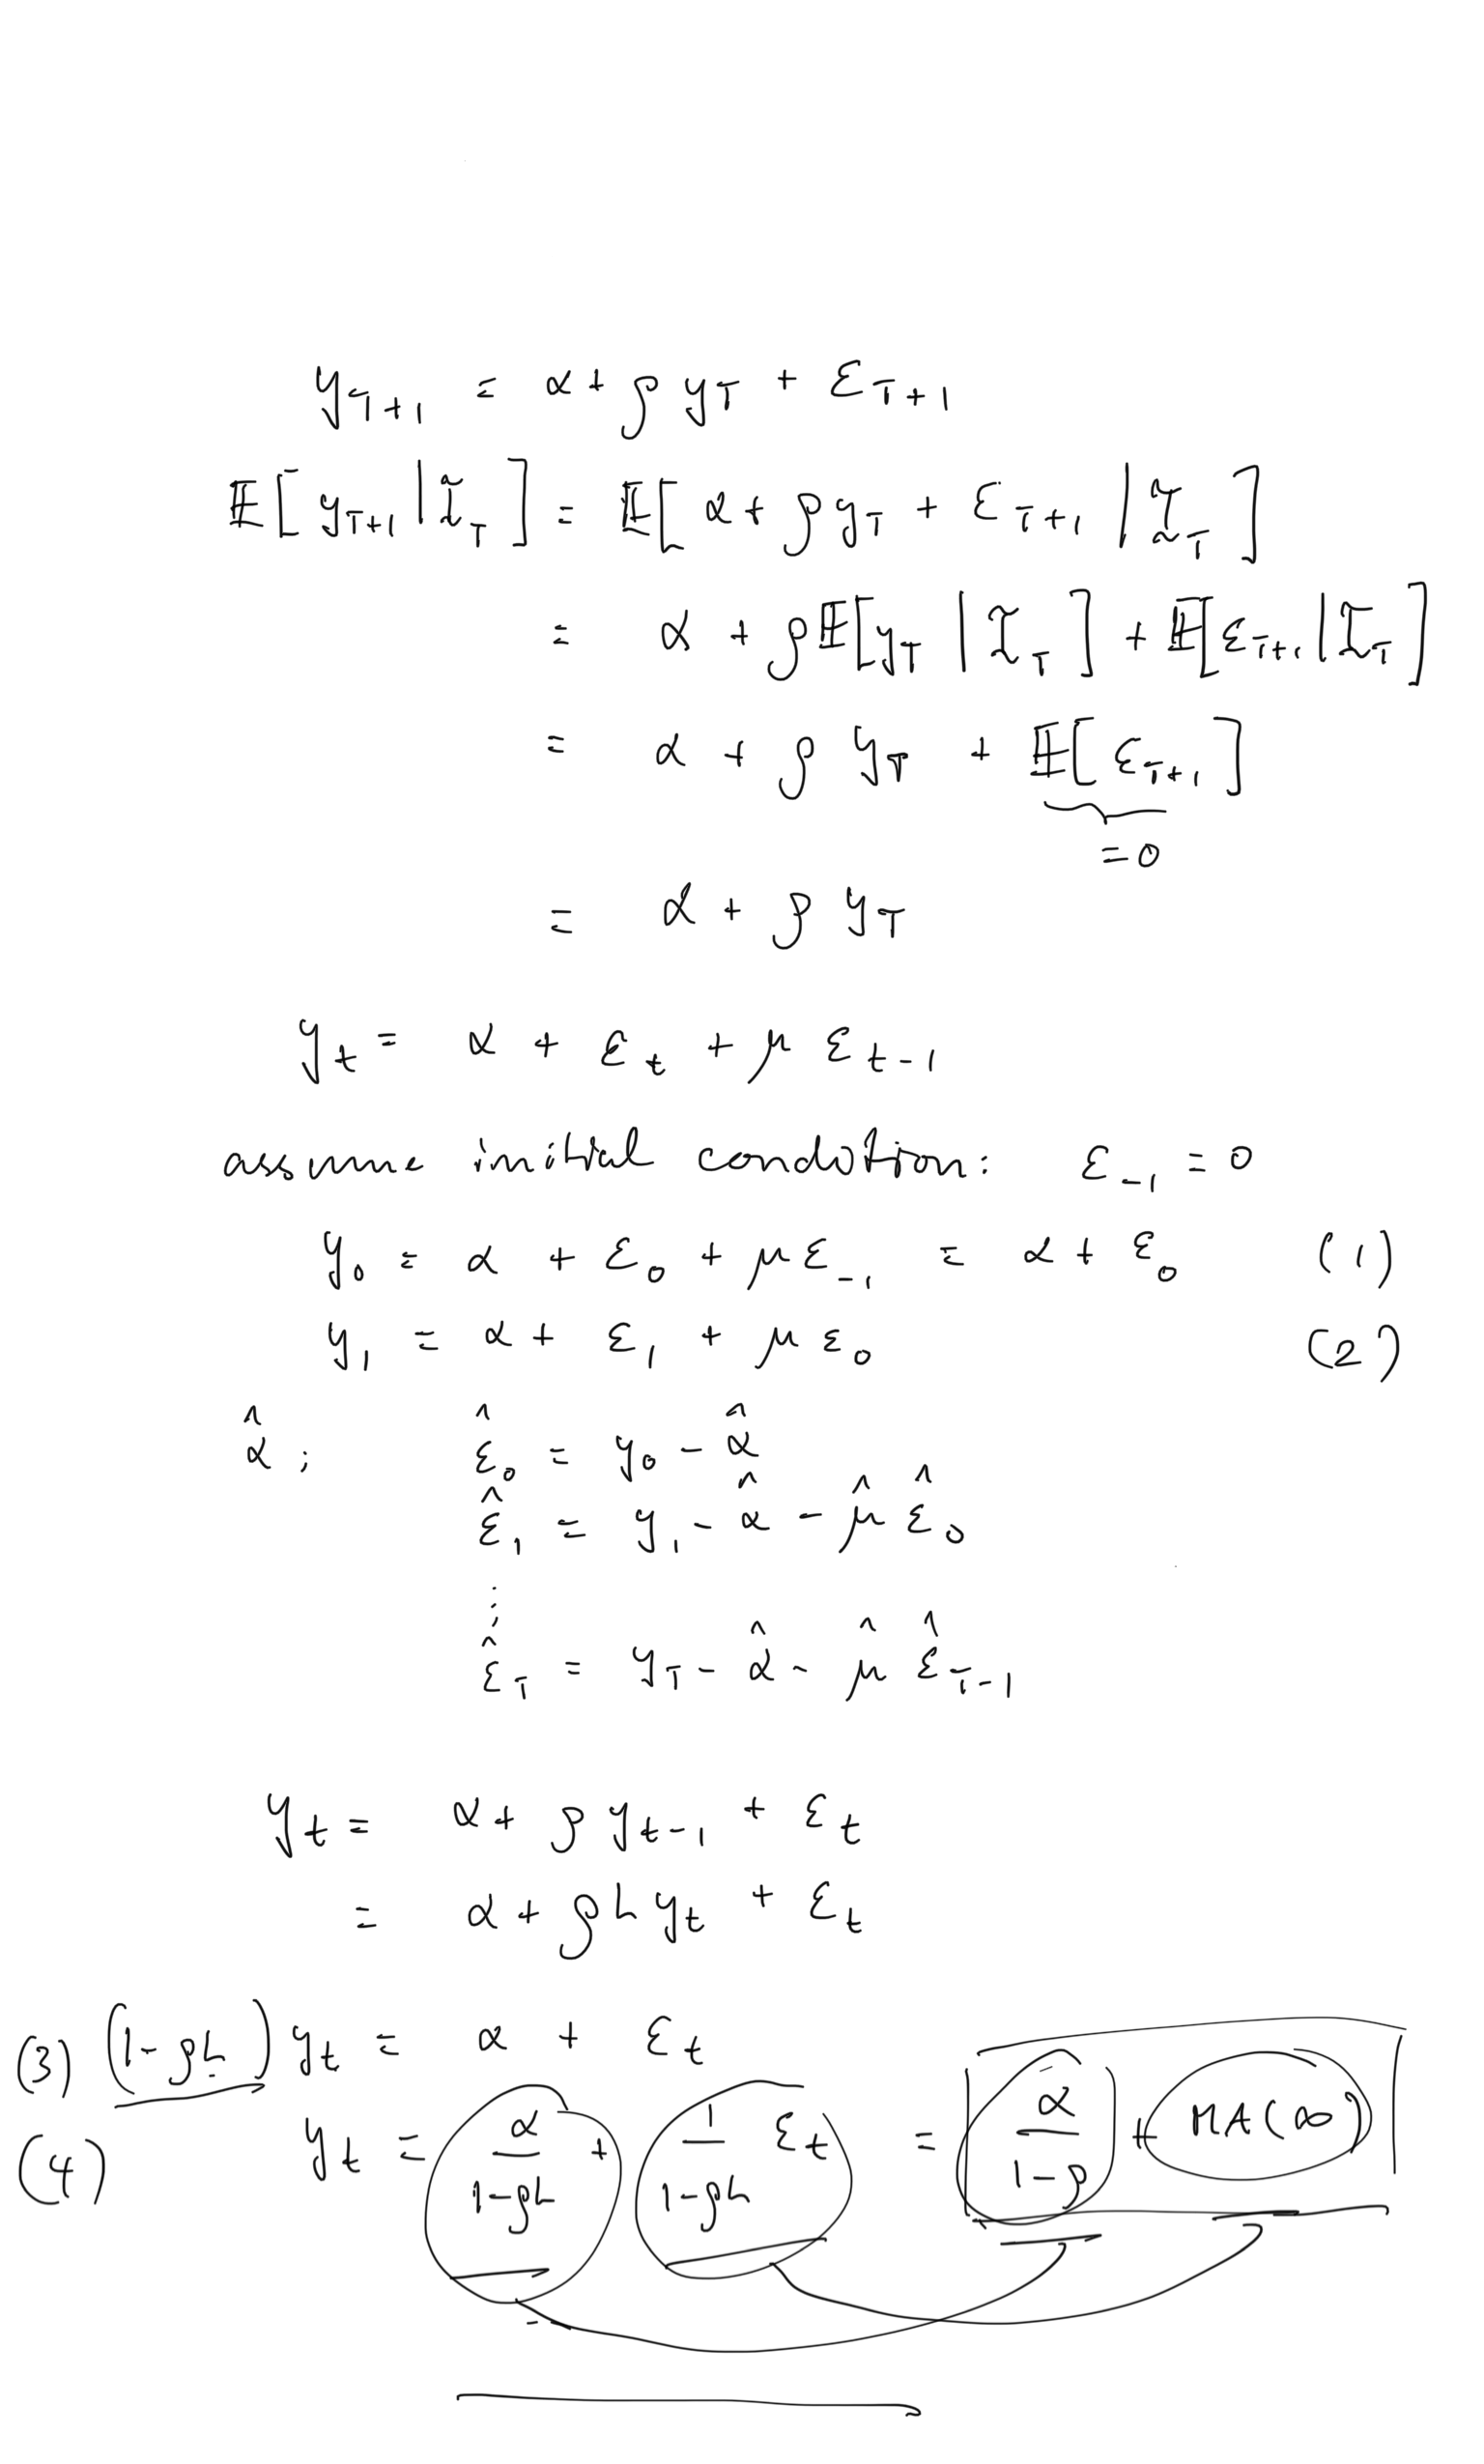 y_{T+1} = α + ρ y_T + ε_{T+1}
𝔼[ y_{T+1} | I_T ] = 𝔼[ α + ρ y_T + ε_{T+1} | I_T ]
= α + ρ 𝔼[ y_T | I_T ] + 𝔼[ ε_{T+1} | I_T ]
= α + ρ y_T + 𝔼[ ε_{T+1} ]
= 0
= α + ρ y_T
y_t = α + ε_t + μ ε_{t-1}
assume initial condition: ε_{-1} = 0
y_0 = α + ε_0 + μ ε_{-1} = α + ε_0 (1)
y_1 = α + ε_1 + μ ε_0 (2)
α̂ ; ε̂_0 = y_0 - α̂
ε̂_1 = y_1 - α̂ - μ̂ ε̂_0
⋮
ε̂_T = y_T - α̂ - μ̂ ε̂_{T-1}
y_t = α + ρ y_{t-1} + ε_t
= α + ρ L y_t + ε_t
(3) (1-ρL) y_t = α + ε_t
(4) y_t = α/(1-ρL) + 1/(1-ρL) ε_t = α/(1-ρ) + MA(∞)